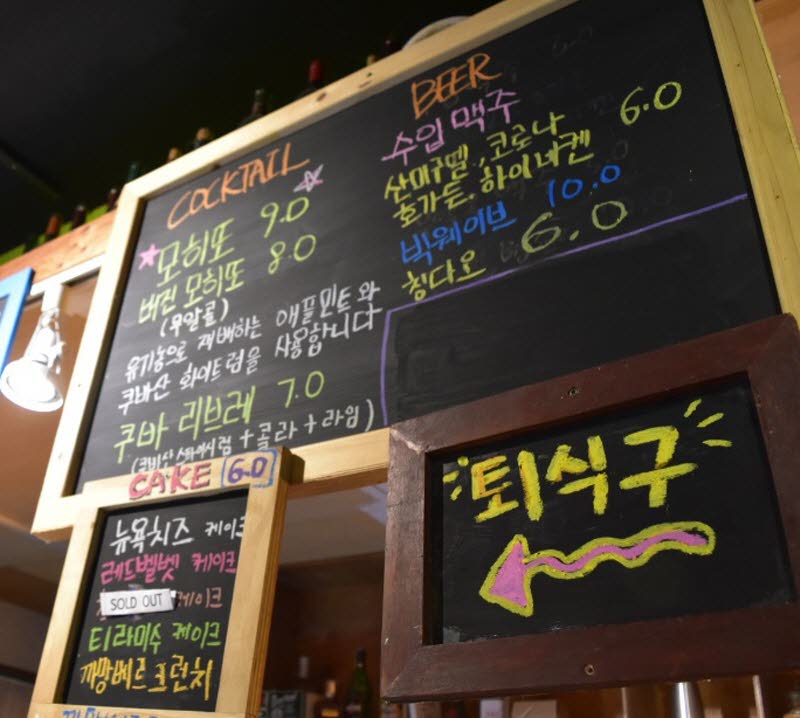 COCKTAIL
모히또 9.0
버진 모히또 8.0
(무알콜)
유기농으로 재배하는 애플민트와
쿠바산 화이트럼을 사용합니다
쿠바 리브레 7.0
(쿠바산 스파이시럼+콜라+라임)
BEER
수입맥주 6.0
산미구엘, 코로나
호가든, 하이네켄
빅웨이브 10.0
칭다오 6.0
CAKE 6.0
뉴욕치즈 케이크
레드벨벳 케이크
SOLD OUT 케이크
티라미수 케이크
까망베르 크런치
퇴식구